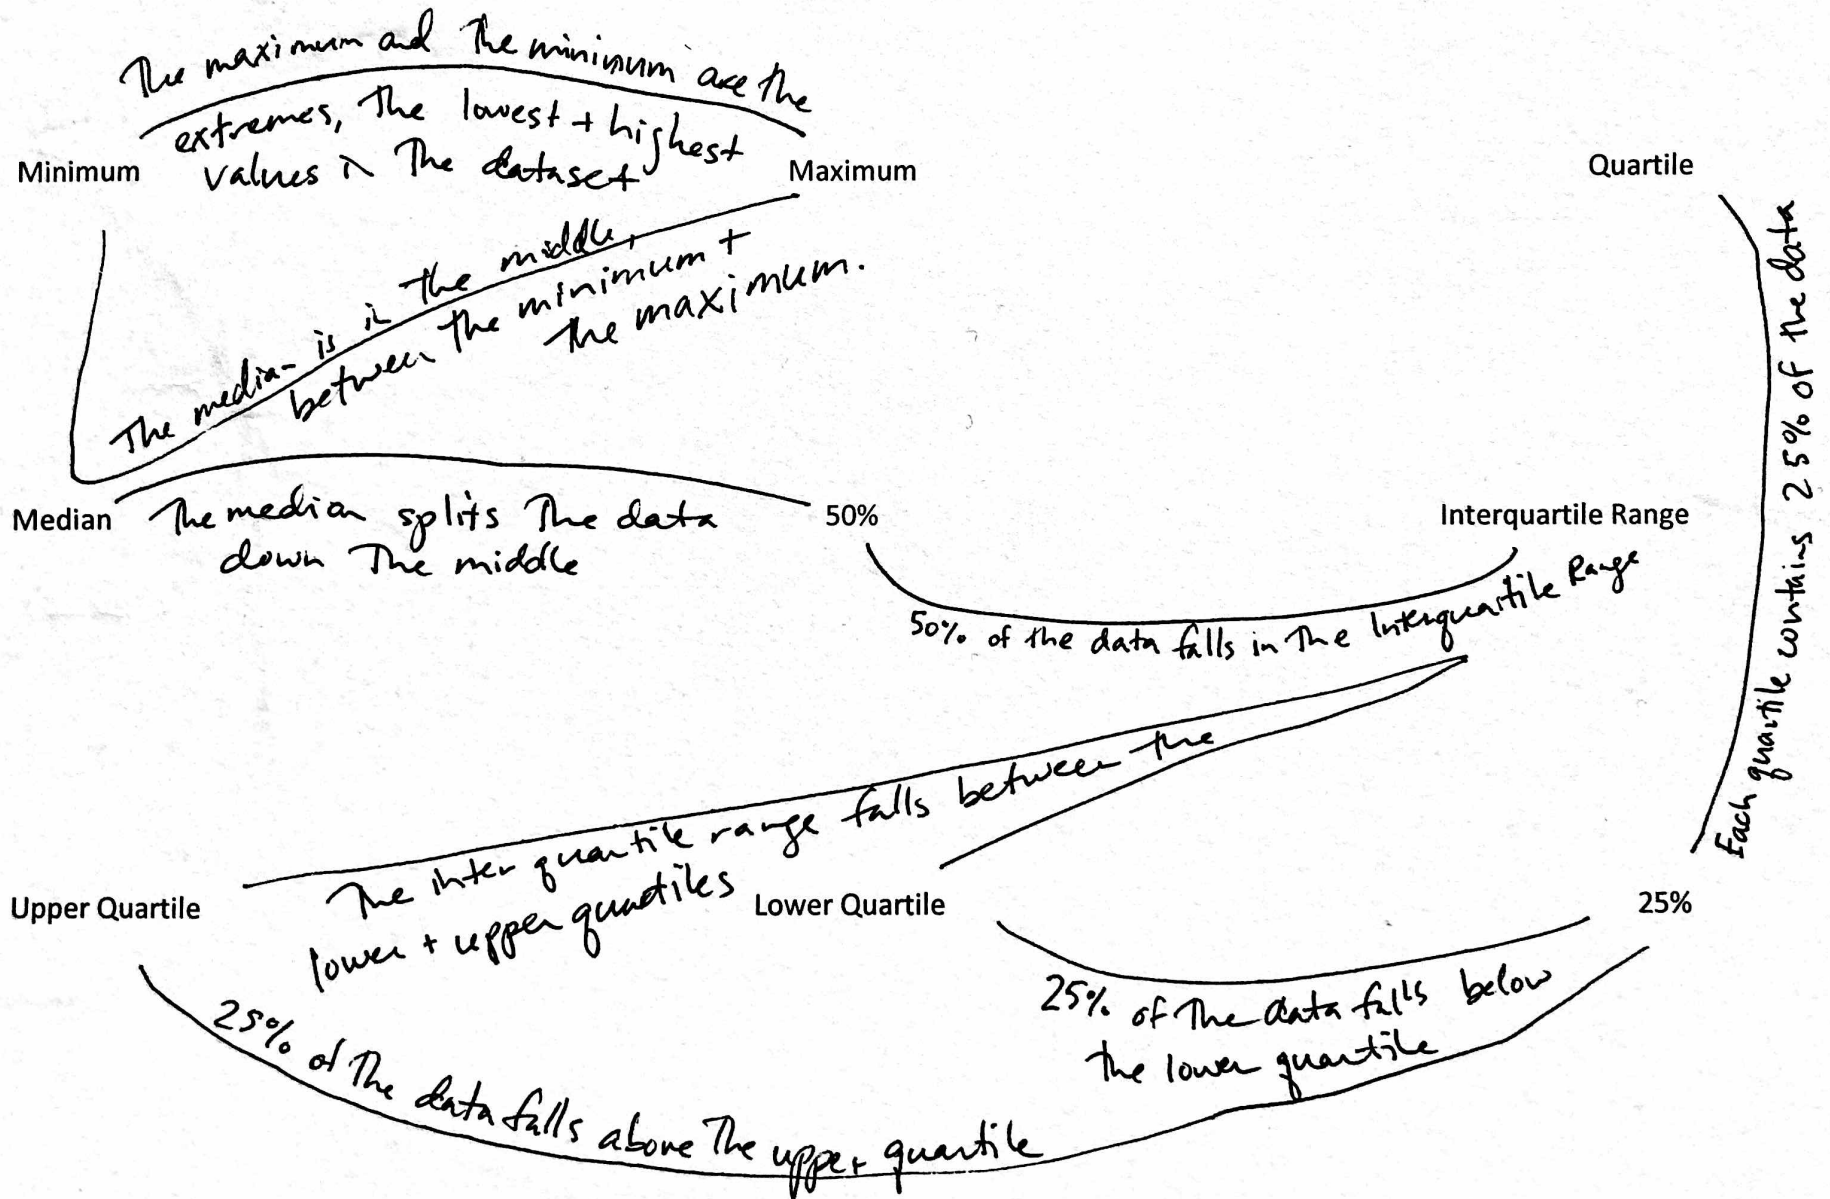 The maximum and the minimum are the
extremes, the lowest + highest
values in the dataset
Minimum
Maximum
Quartile
The median is in the middle,
between the minimum +
the maximum.
Each quartile contains 25% of the data
Median
The median splits the data
down the middle
50%
Interquartile Range
50% of the data falls in the Interquartile Range
The interquartile range falls between the
lower + upper quartiles
Upper Quartile
Lower Quartile
25%
25% of the data falls below
the lower quartile
25% of the data falls above the upper quartile